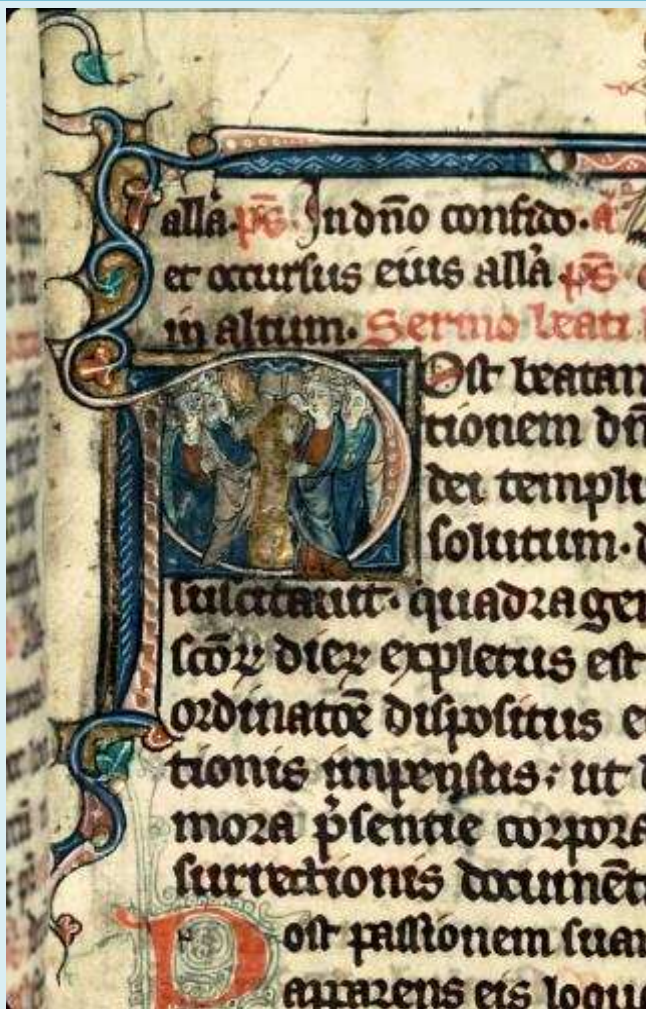 all'a. ps̄. In dn̄o confido. a
et occursus eius all'a ps̄
in altum. Sermo beati
Post beatam
tionem dn̄
dei templu
solutum. d
suscitauit. quadragen
scōꝝ dieꝝ expletus est
ordinatōē dispositus e
tionis impensus: ut
mora p̄sentie corpora
surrectionis documēt
Post passionem suam
apparens eis loque